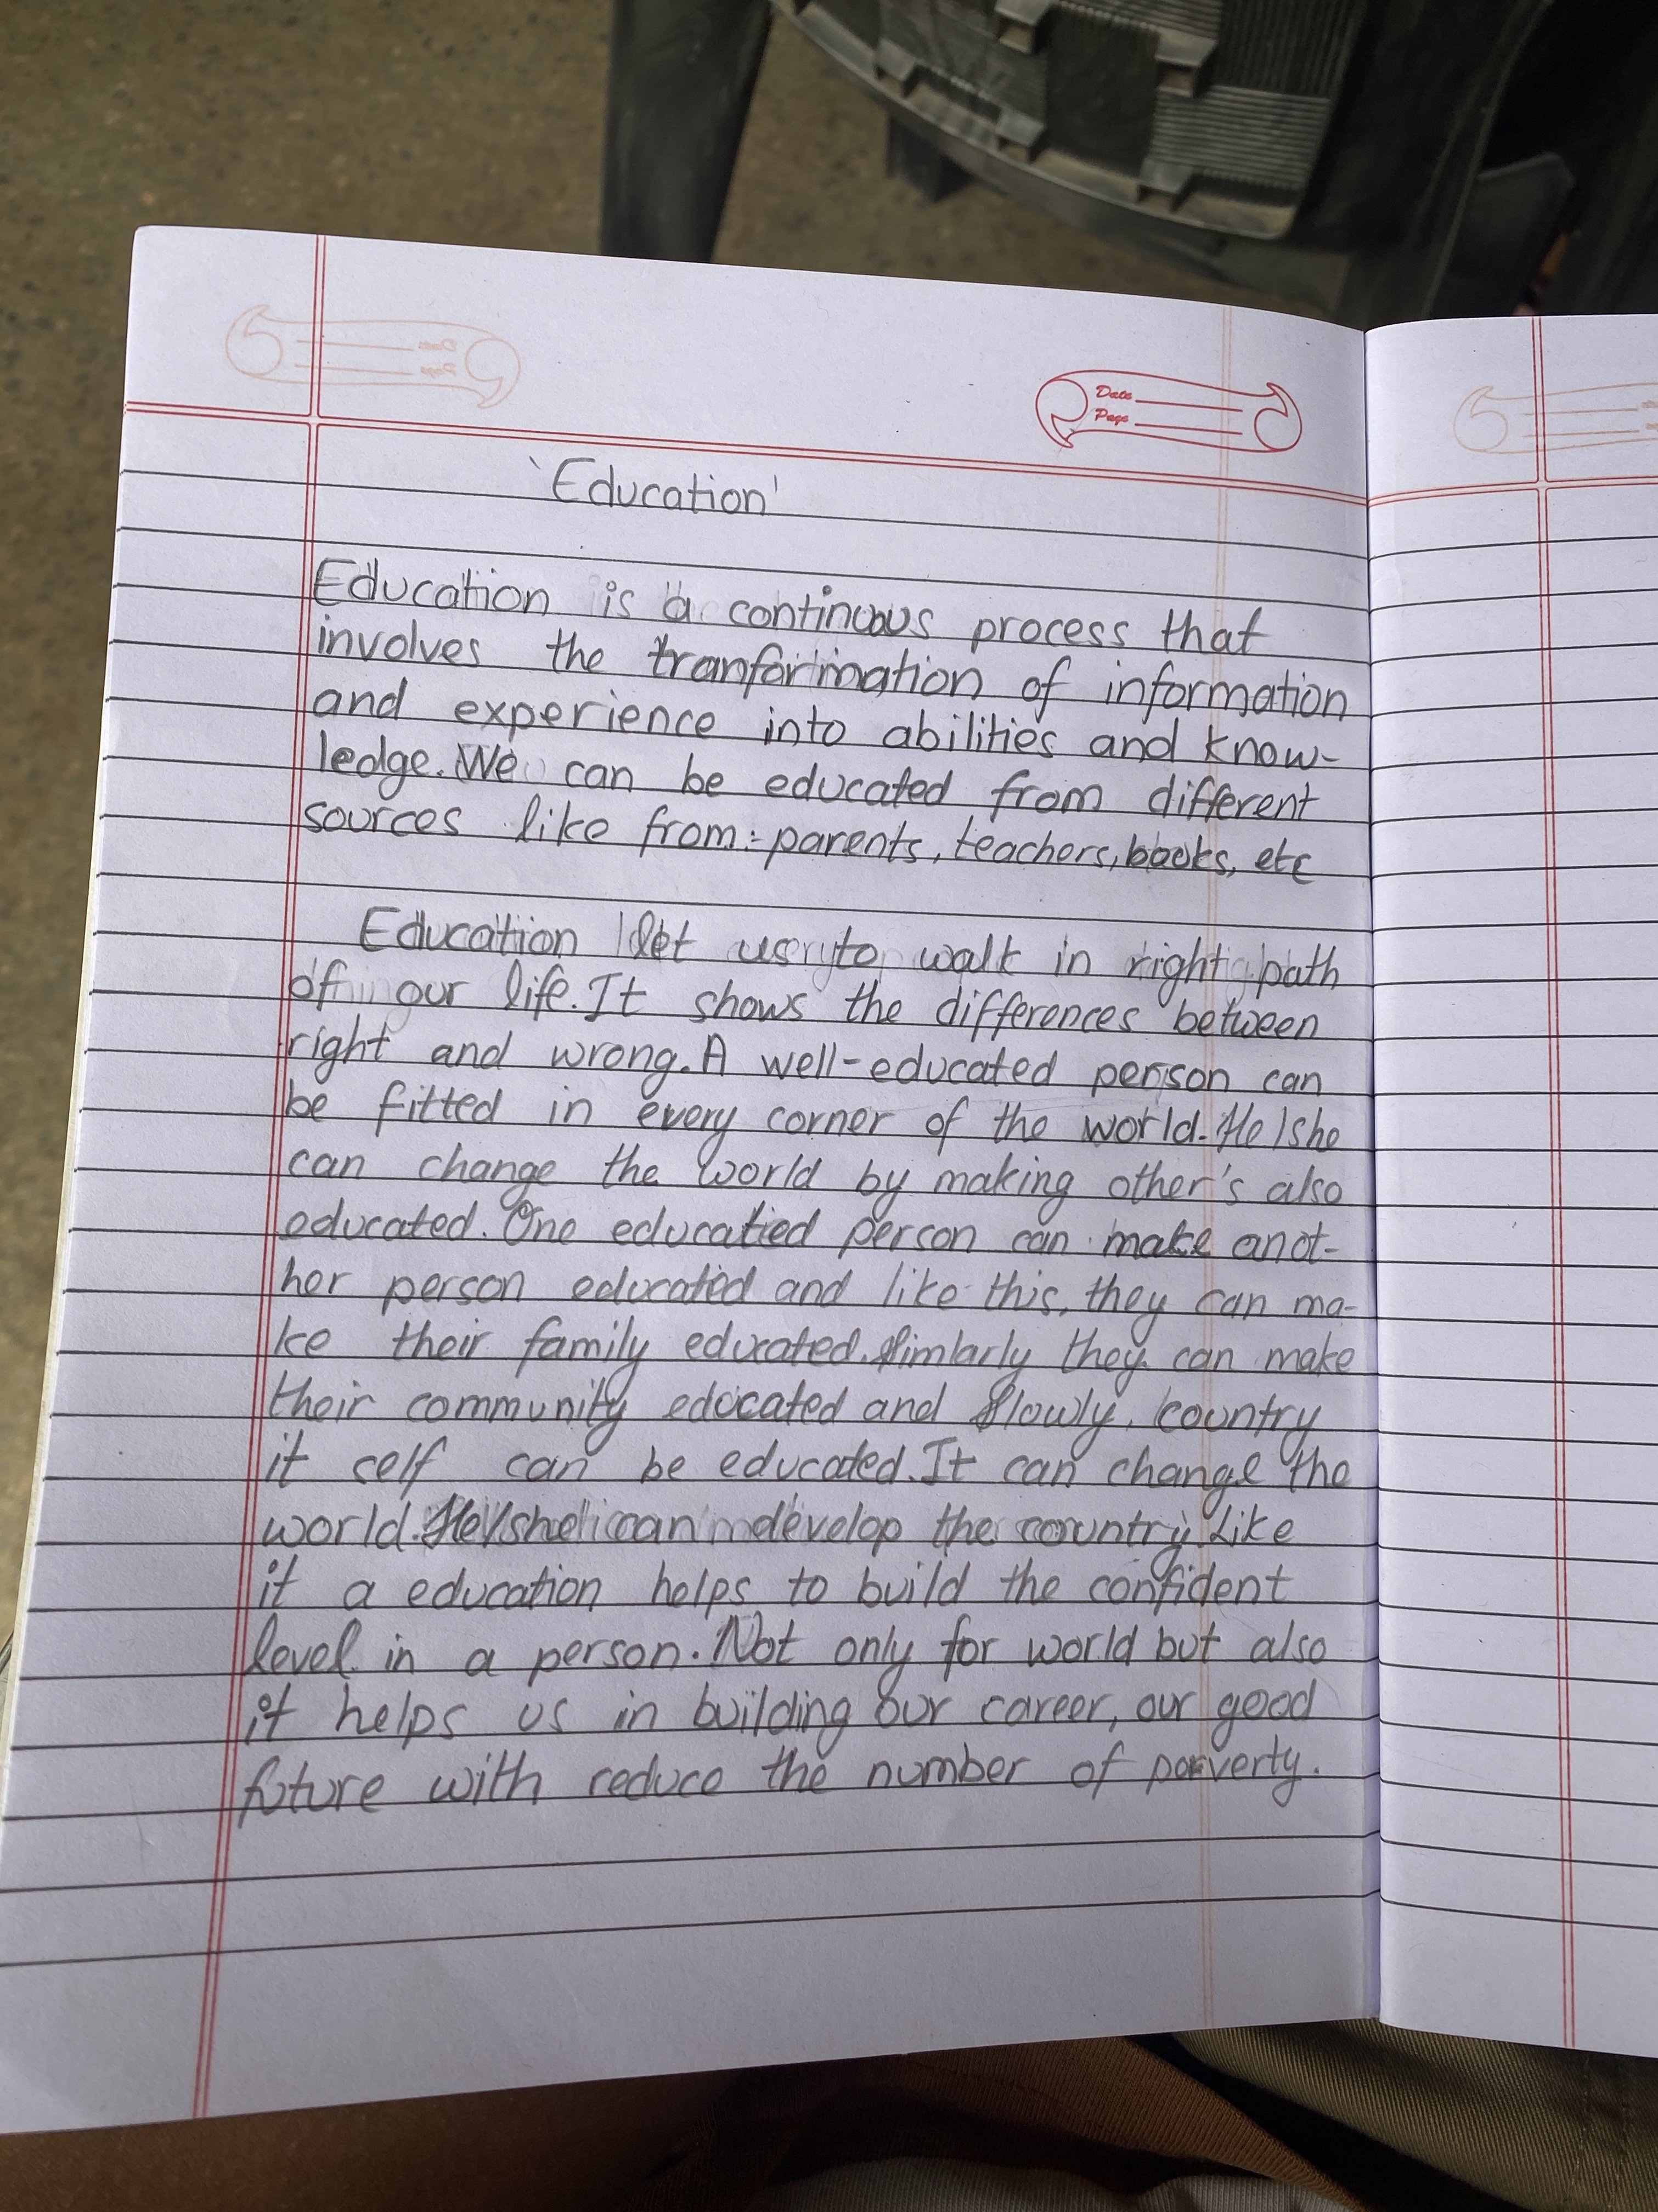 Date
Page
'Education'
Education is a continous process that
involves the tranformation of information
and experience into abilities and know-
ledge. We can be educated from different
sources like from:- parents, teachers, books, etc
Education let us to walk in right path
of our life. It shows the differences between
right and wrong. A well-educated person can
be fitted in every corner of the world. He/she
can change the world by making other's also
educated. One educatied person can make anot-
her person educated and like this, they can ma-
ke their family educated. Simlarly they can make
their community educated and slowly, country
it self can be educated. It can change the
world. He/she can develop the country. Like
it a education helps to build the confident
level in a person. Not only for world but also
it helps us in building our career, our good
future with reduce the number of poverty.